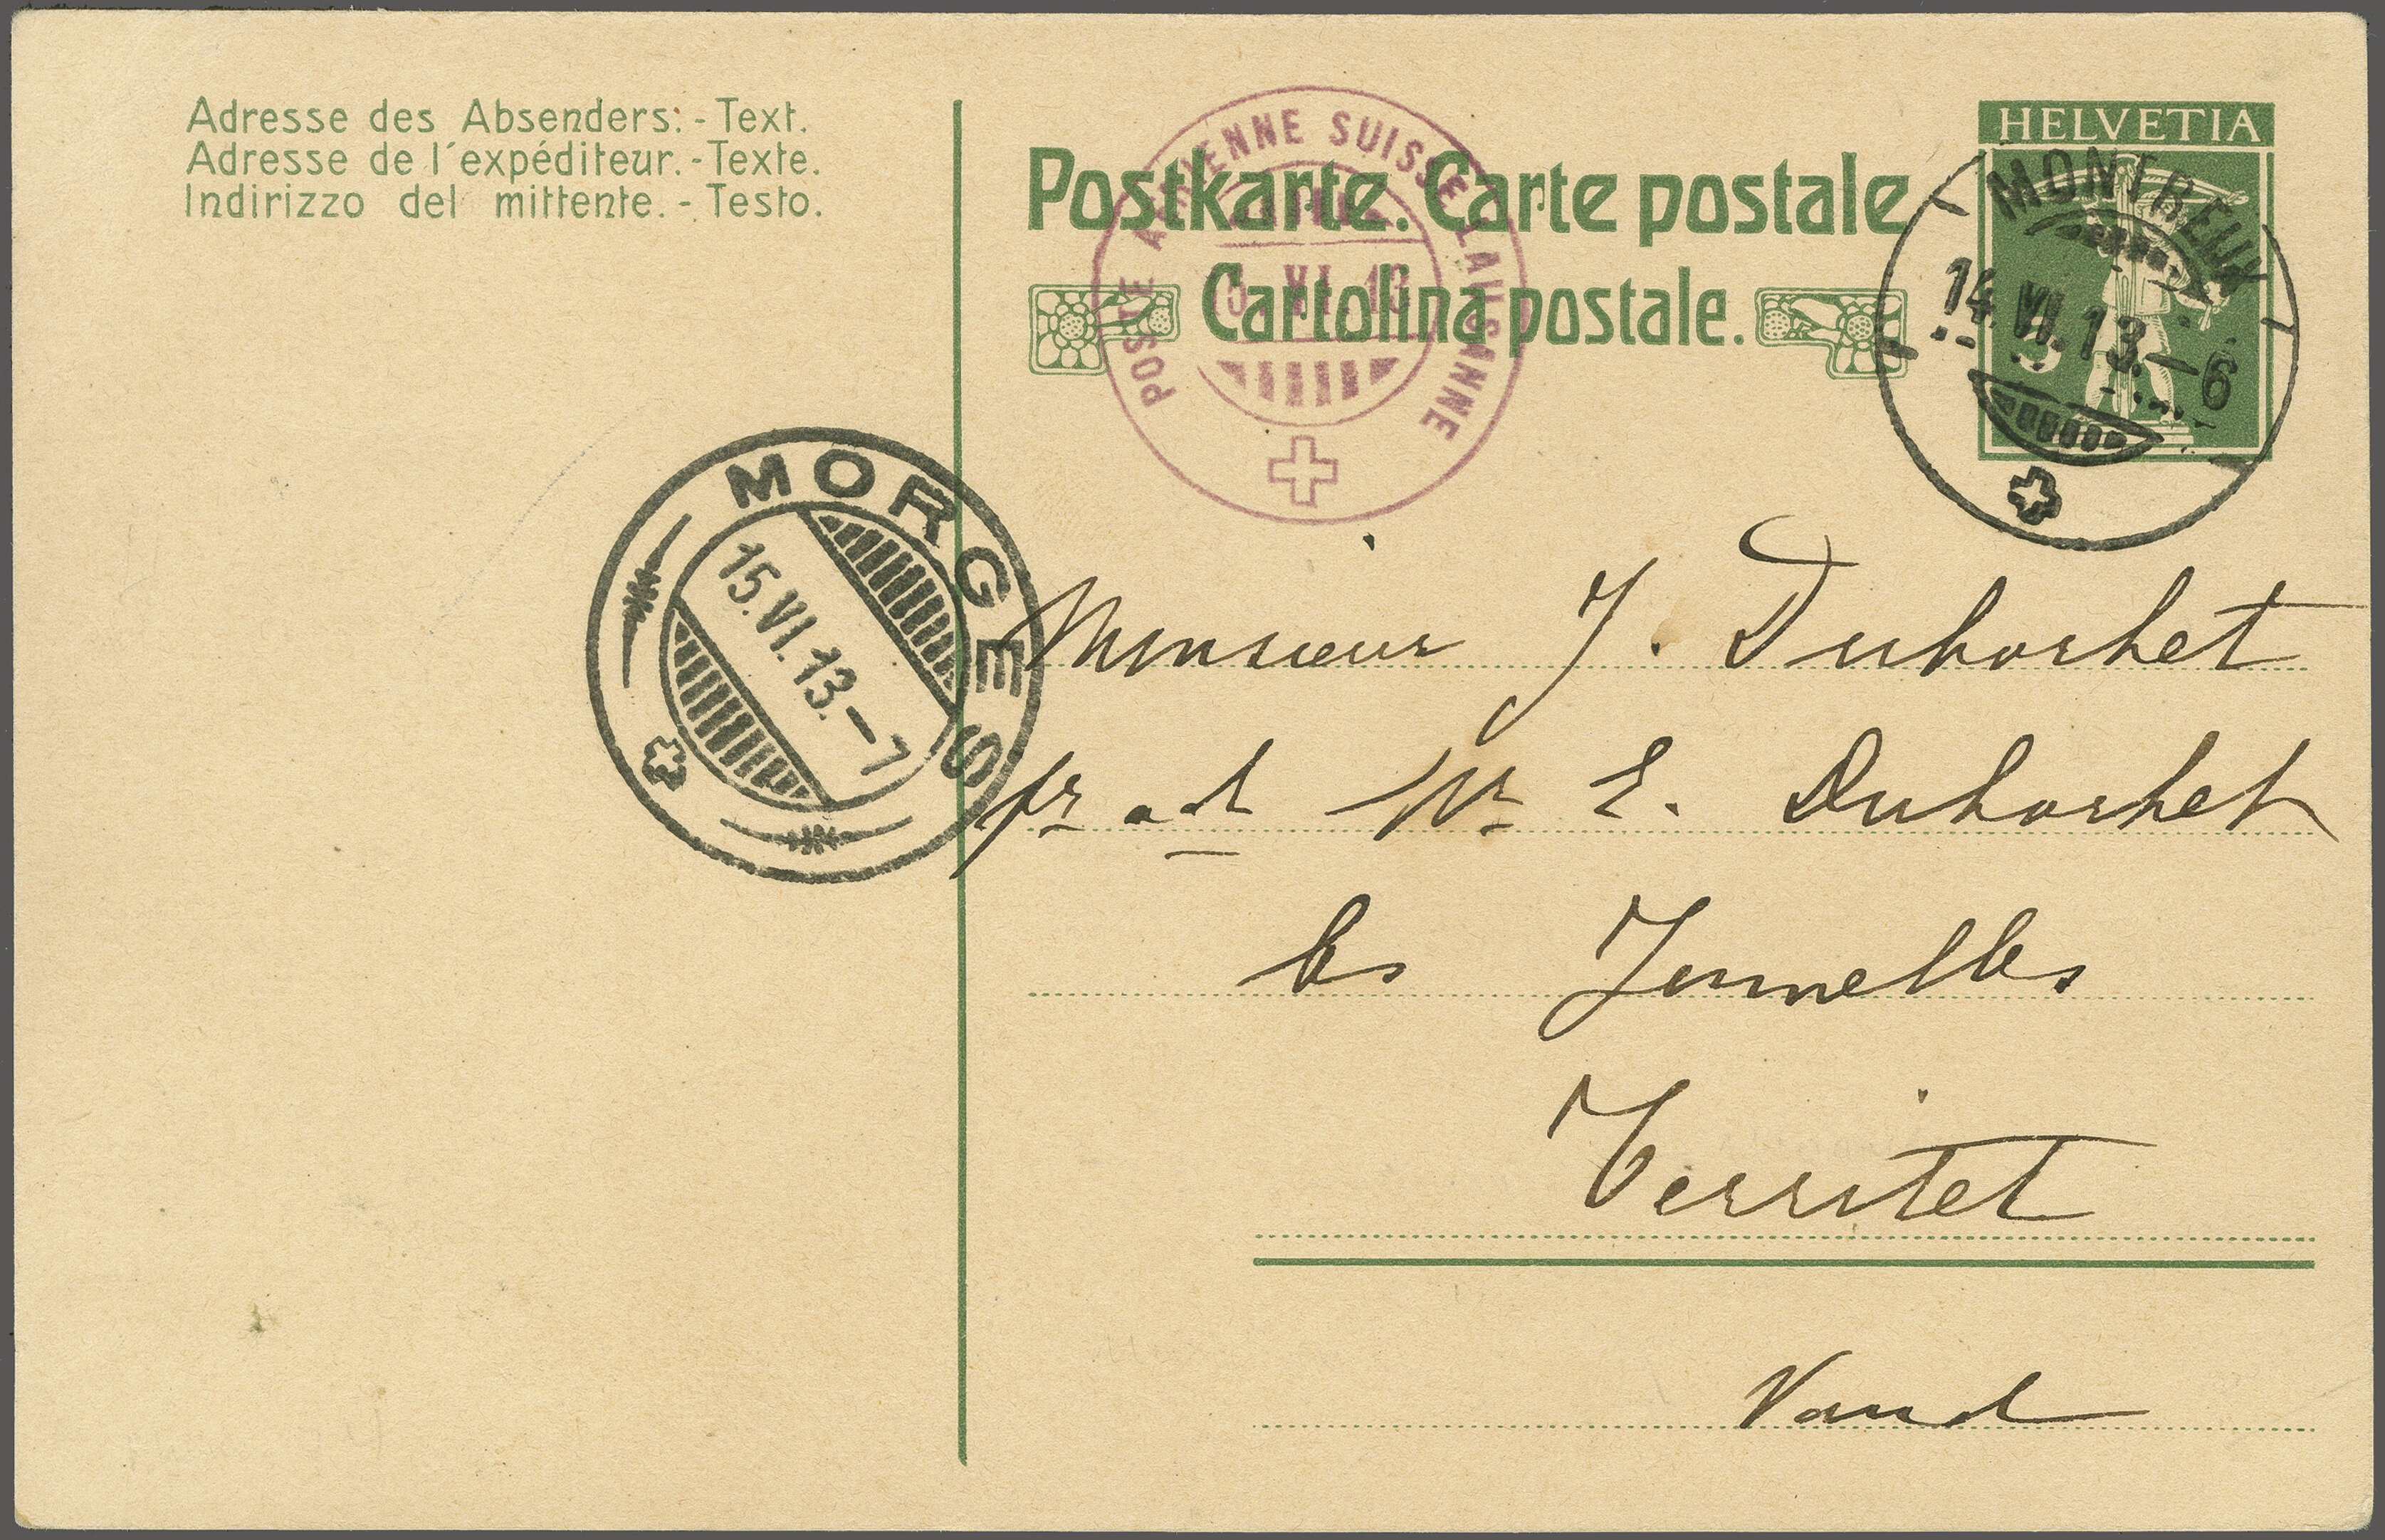 Adresse des Absenders: - Text.
Adresse de l'expéditeur. - Texte.
Indirizzo del mittente. - Testo.
POSTE AÉRIENNE SUISSE LAUSANNE
15. VI. 13
Postkarte. Carte postale
Cartolina postale.
HELVETIA
5
MONTREUX
14. VI. 13. - 6
MORGES
15. VI. 13. - 7
Monsieur J. Duhochet
pr ad Mr E. Duhochet
les Jumelles
Territet
Vaud